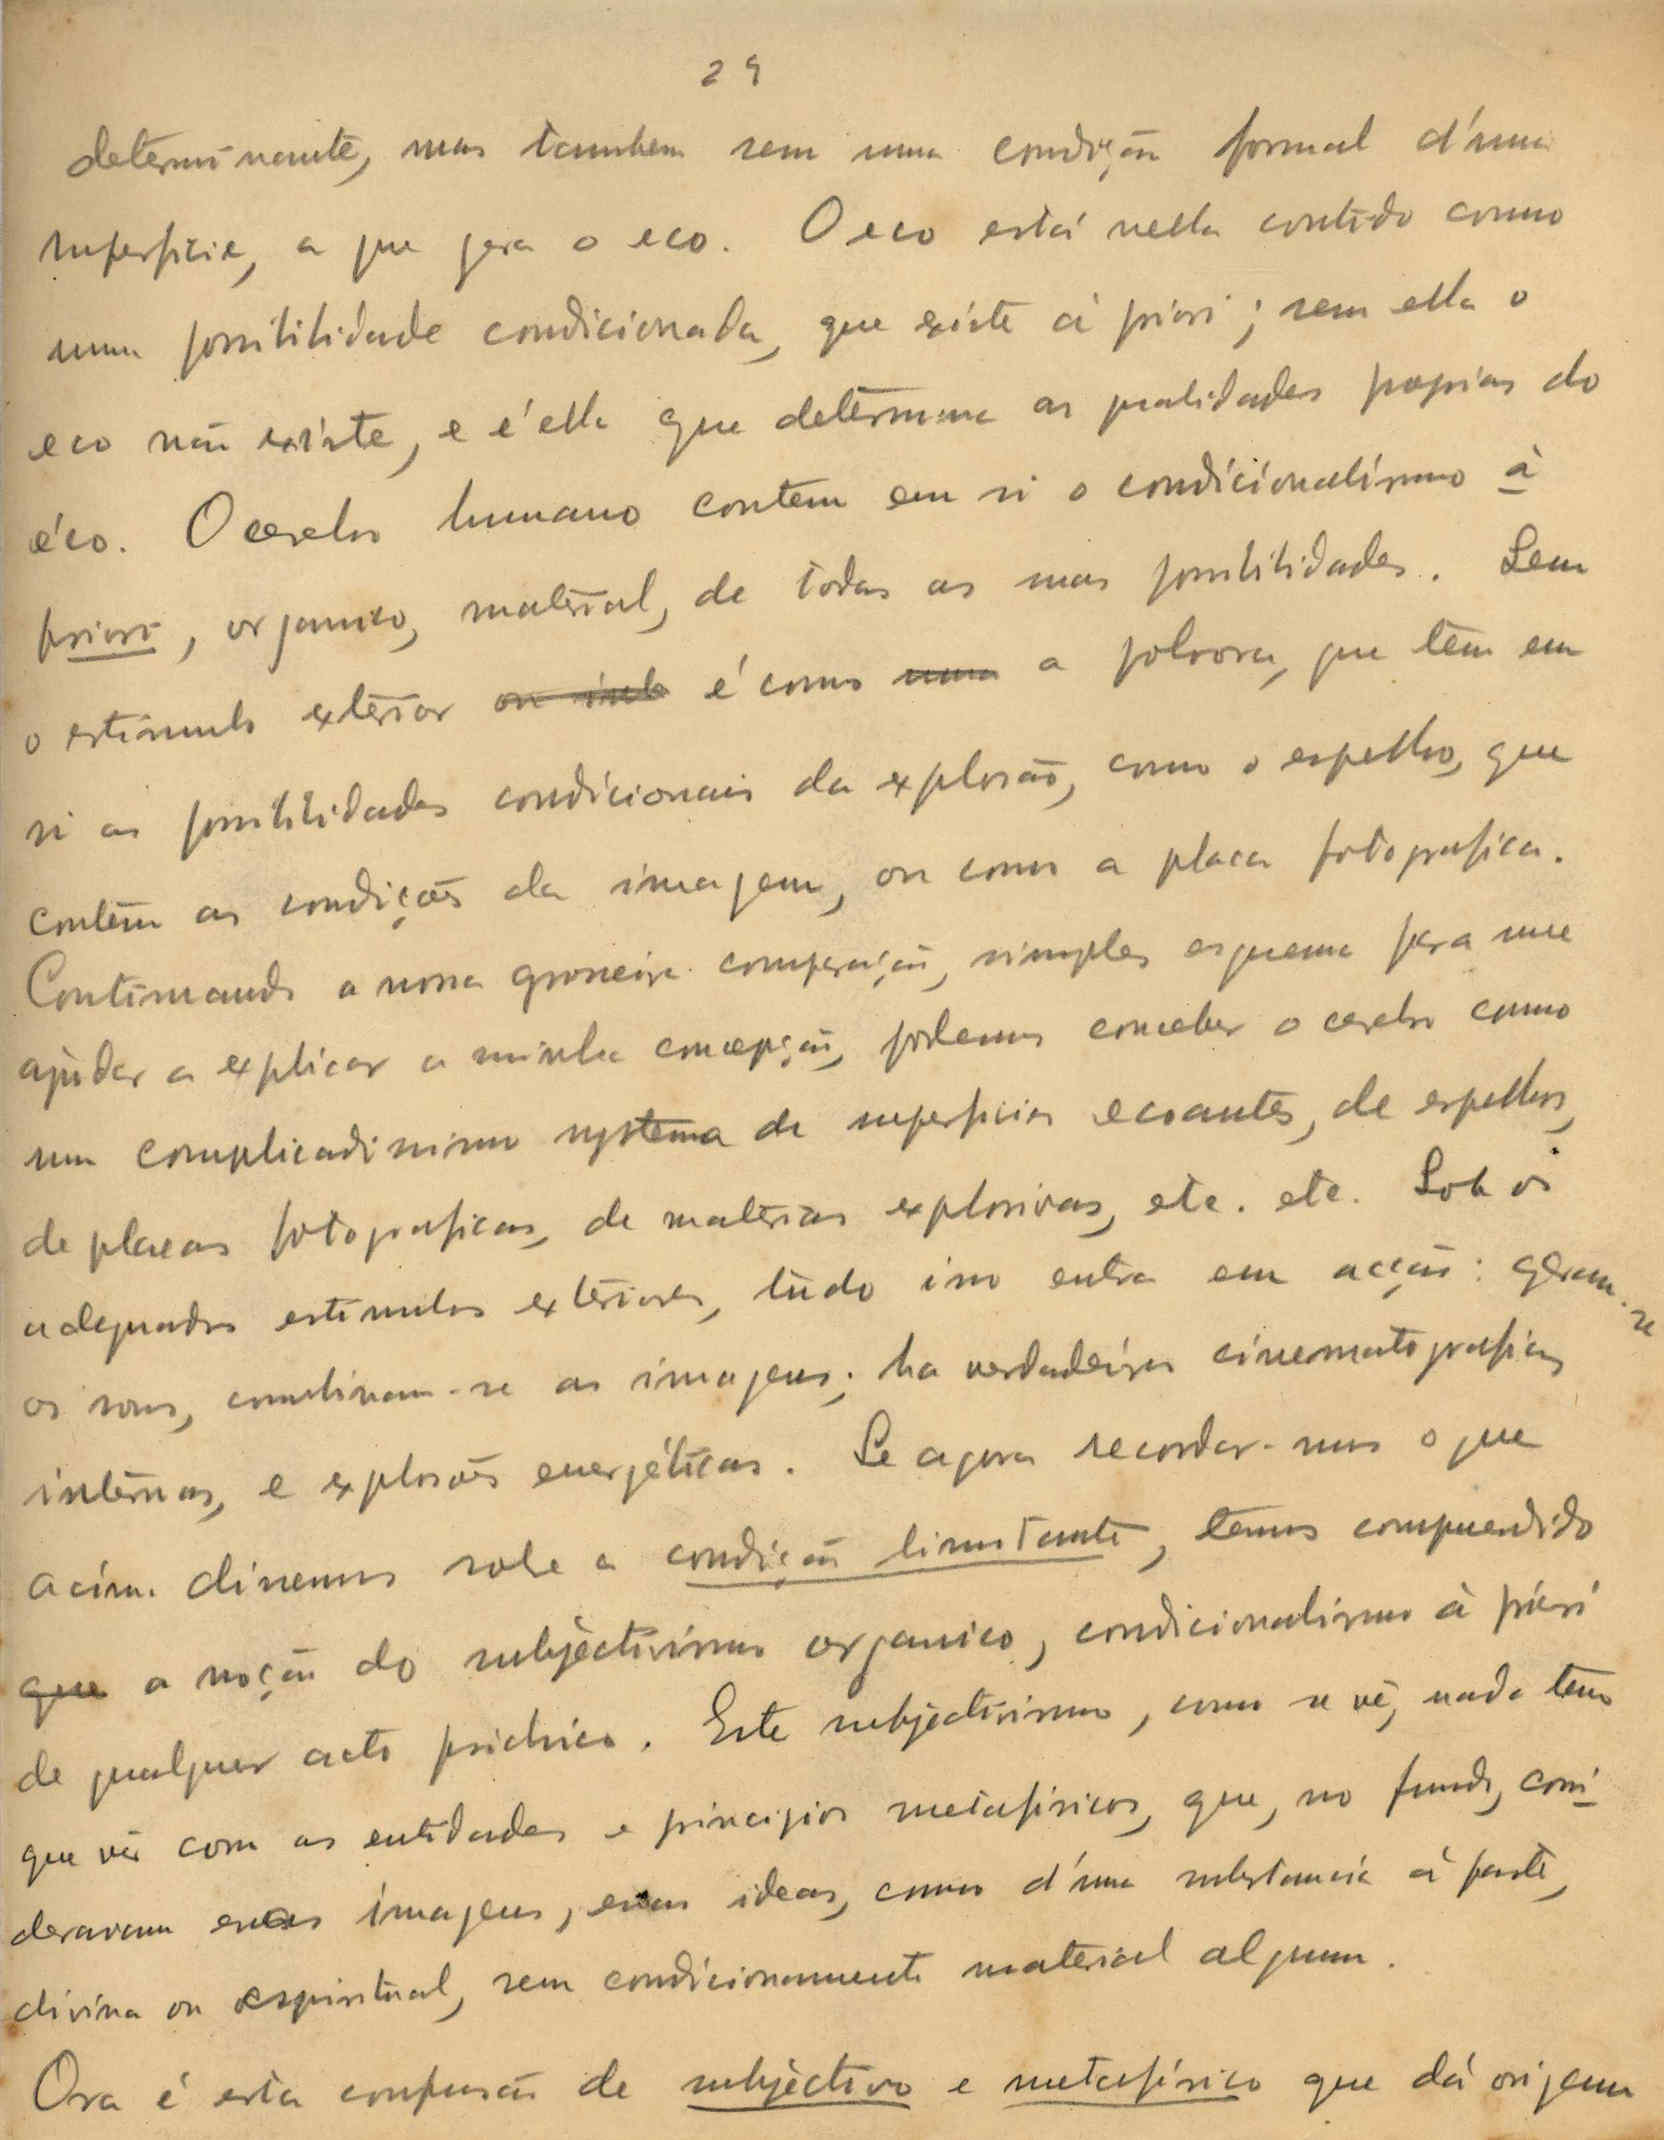 29
determinante, mas tambem sem uma condição formal d'uma
superficie, a que gera o eco. O eco está nella contido como
uma possibilidade condicionada, que existe à priori; sem ella o
eco não existe, e é ella que determina as qualidades proprias do
éco. O cerebro humano contem em si o condicionalismo à
priori, organico, material, de todas as suas possibilidades. Sem
o estimulo exterior é como a polvora, que tem em
si as possibilidades condicionais da explosão, como o espelho, que
contêm as condições da imagem, ou como a placa fotografica.
Continuando a nossa grosseira comparação, simples esquema para me
ajudar a explicar a minha concepção, podemos conceber o cerebro como
um complicadissimo systema de superficies ecoantes, de espelhos,
de placas fotograficas, de materias explosivas, etc. etc. Sob os
adequados estimulos exteriores, tudo isso entra em acção: geram-se
os sons, combinam-se as imagens; ha verdadeiras cinematograficas
internas, e explosões energéticas. Se agora recordar-mos o que
acima dissemos sobre a condição limitante, temos comprendido
que a noção do subjèctivismo organico, condicionalismo à priori
de qualquer acto psichico. Este subjèctivismo, como se vê, nada tem
que vêr com as entidades e principios metafisicos, que, no fundo, consi
deravam essas imagens, essas ideas, como d'uma substancia à parte,
divina ou espiritual, sem condicionamento material algum.
Ora é esta confusão de subjèctivo e metafisico que dá origem